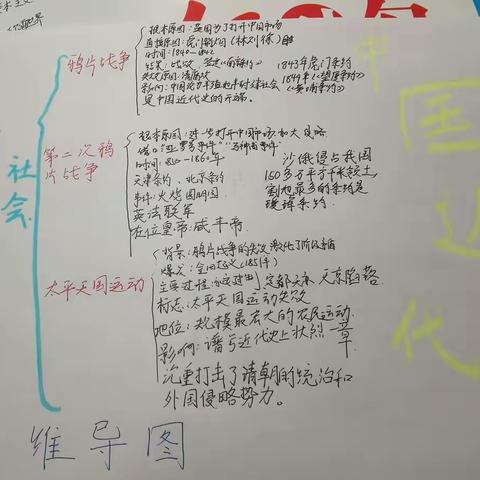 社会
鸦片战争
根本原因:英国为了打开中国市场
直接原因:虎门销烟(林则徐)
时间:1840-1842
1843年虎门条约
影响:中国沦为半殖民地半封建社会
是中国近代史的开端。
第二次鸦片战争
根本原因:进一步打开中国市场,扩大侵略
时间:1856-1860年
天津条约、北京条约
事件:火烧圆明园
英法联军
在位皇帝:咸丰帝.
沙俄侵占我国
150多万平方千米领土,
割地最多的条约是
瑷珲条约.
太平天国运动
背景:鸦片战争的失败 激化了阶级矛盾
爆发:金田起义(1851年)
定都天京 天京陷落.
标志:太平天国运动失败
地位:规模最宏大的农民运动.
影响:谱写近代史上壮烈一章
沉重打击了清朝的统治和
外国侵略势力。
中国近代
维导图